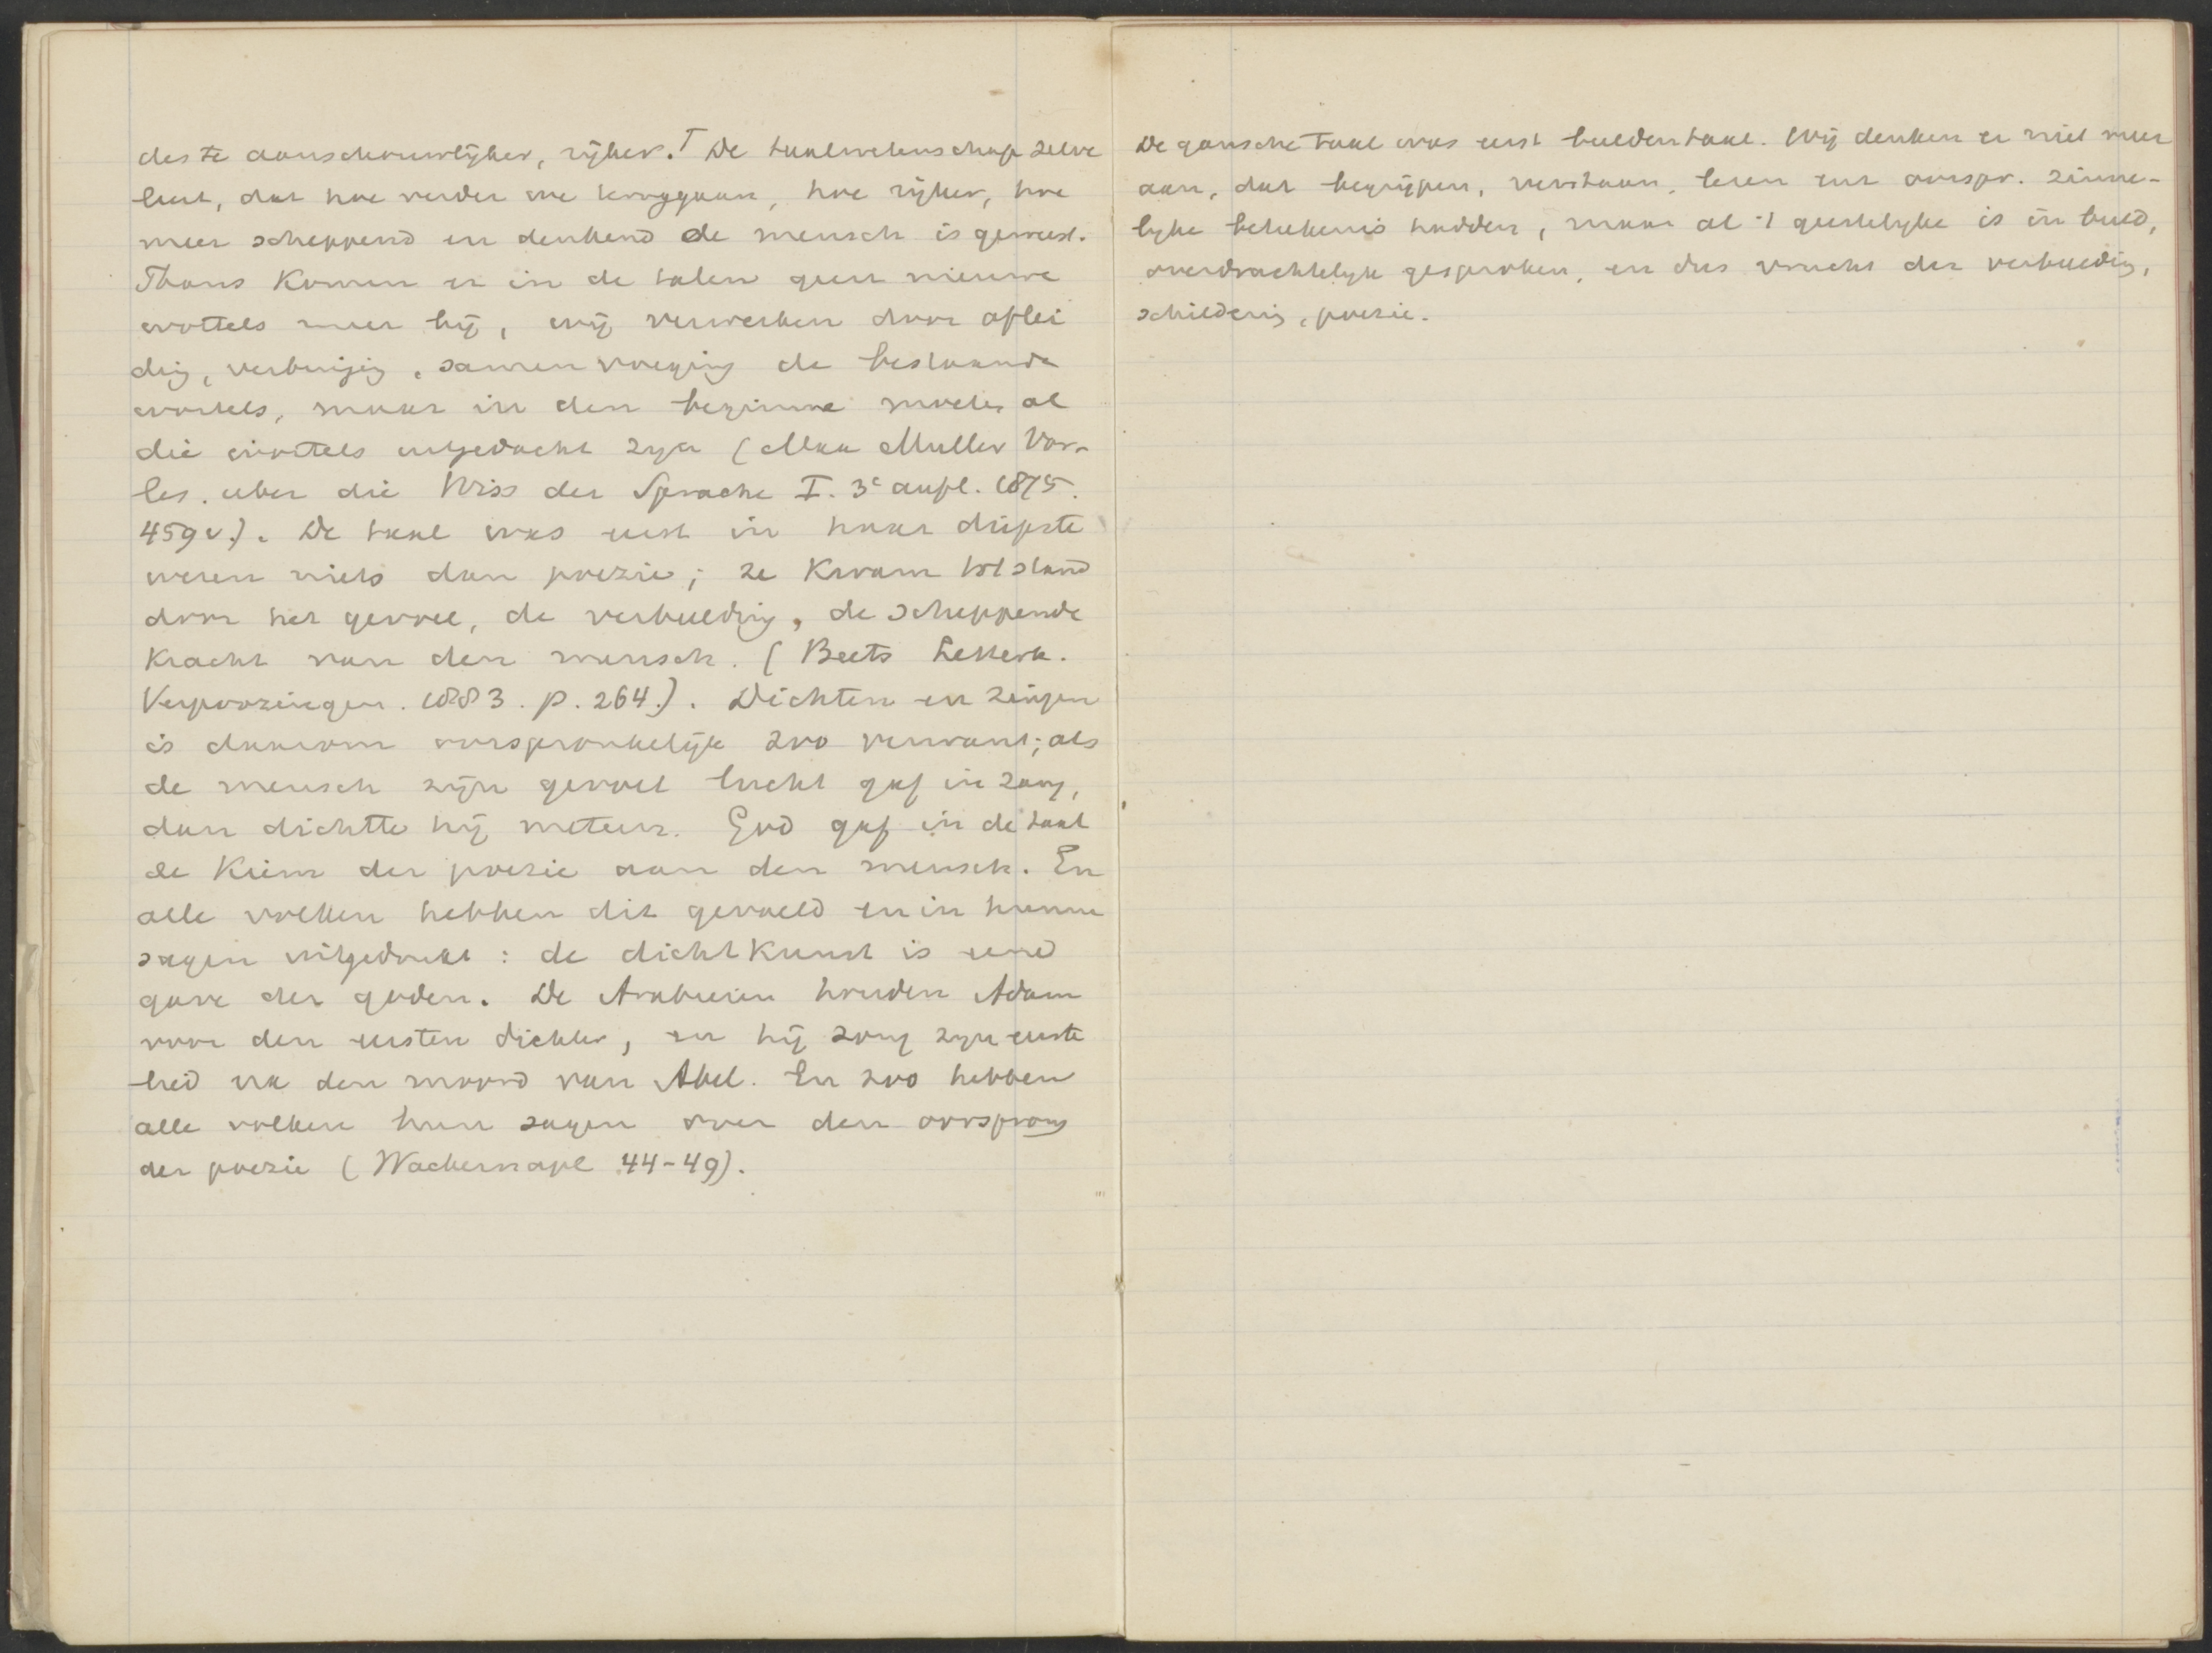 des te aanschouwlijker, rijker.⌈ De taalwetenschap zelve
leert, dat hoe verder we teruggaan, hoe rijker, hoe
meer scheppend en denkend de mensch is geweest.
Thans komen er in de talen geen nieuwe
wortels meer bij, wij verwerken door aflei
ding, verbuiging, samenvoeging de bestaande
wortels, maar in den beginne moeten al
die wortels uitgedacht zyn (Max Muller Vor-
les. uber die Wiss der Sprache I. 3e aufl. 1875.
459 v.). De taal was eerst in haar diepste
wezen niets dan poezie; ze kwam tot stand
door het gevoel, de verbeelding, de scheppende
kracht van den mensch. (Beets Letterk.
Verpoozingen. 1883. p. 264.). Dichten en zingen
is daarom oorspronkelijk zoo verwant; als
de mensch zijn gevoel lucht gaf in zang,
dan dichtte hij meteen. God gaf in de taal
de kiem der poezie aan den mensch. En
alle volken hebben dit gevoeld en in hunne
sagen uitgedrukt : de dichtkunst is eene
gave der goden. De Arabieren houden Adam
voor den eersten dichter, en hij zong zyn eerste
lied na den moord van Abel. En zoo hebben
alle volken hun sagen over den oorsprong
der poezie (Wackernagel 44-49).
De gansche taal was eerst beeldentaal. Wij denken er niet meer
aan, dat begrijpen, verstaan, lezen eene oorspr. zinne-
lyke betekenis hadden, maar al 't geestelyke is in beeld,
overdrachtelyk gesproken, en dus vrucht der verbeelding,
schildering, poezie.